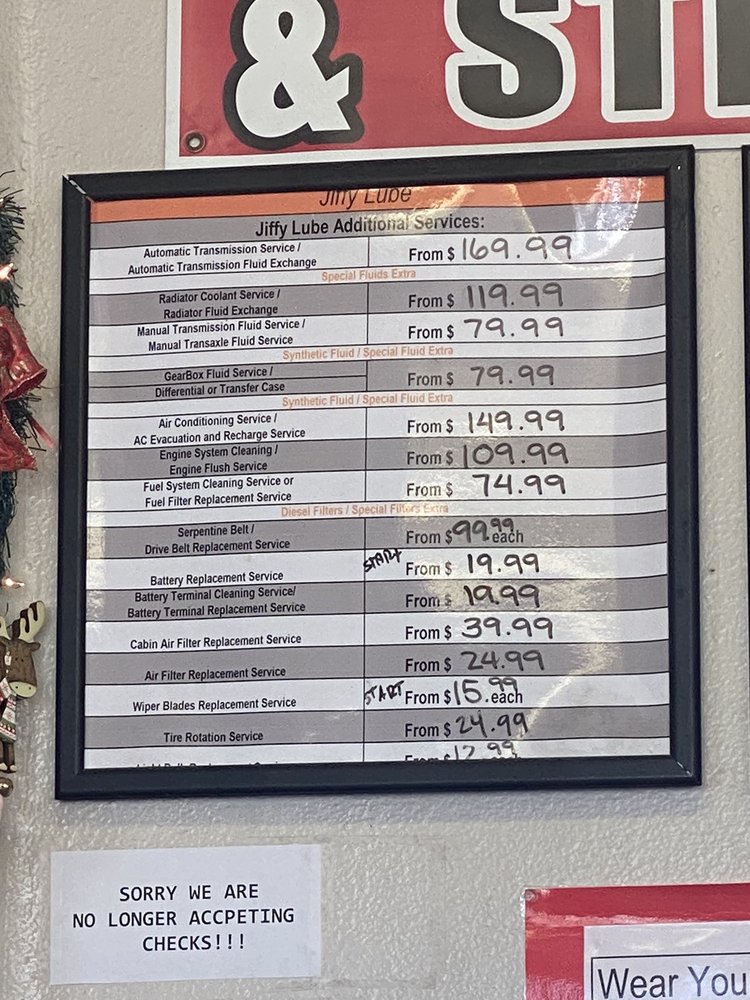 & ST
Jiffy Lube
Jiffy Lube Additional Services:
Automatic Transmission Service /
Automatic Transmission Fluid Exchange
From $ 169.99
Special Fluids Extra
Radiator Coolant Service /
Radiator Fluid Exchange
From $ 119.99
Manual Transmission Fluid Service /
Manual Transaxle Fluid Service
From $ 79.99
Synthetic Fluid / Special Fluid Extra
GearBox Fluid Service /
Differential or Transfer Case
From $ 79.99
Synthetic Fluid / Special Fluid Extra
Air Conditioning Service /
AC Evacuation and Recharge Service
From $ 149.99
Engine System Cleaning /
Engine Flush Service
From $ 109.99
Fuel System Cleaning Service or
Fuel Filter Replacement Service
From $ 74.99
Diesel Filters / Special Filters Extra
Serpentine Belt /
Drive Belt Replacement Service
From $ 99.99 each
Battery Replacement Service
START From $ 19.99
Battery Terminal Cleaning Service/
Battery Terminal Replacement Service
From $ 19.99
Cabin Air Filter Replacement Service
From $ 39.99
Air Filter Replacement Service
From $ 24.99
Wiper Blades Replacement Service
START From $ 15.99 each
Tire Rotation Service
From $ 24.99
From $ 12.99
SORRY WE ARE
NO LONGER ACCPETING
CHECKS!!!
Wear You